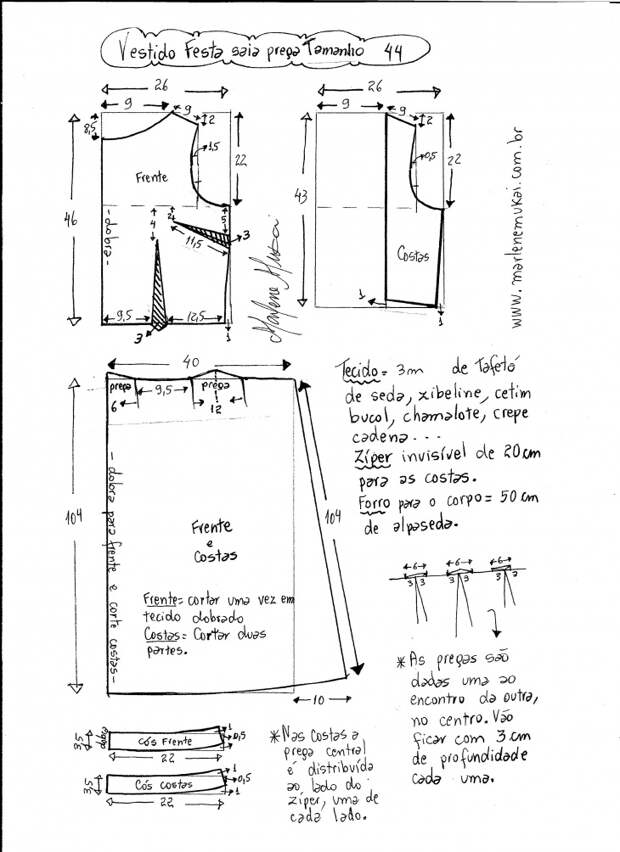 Vestido Festa saia prega Tamanho 44
26
9
9
2
8,5
1,5
22
Frente
46
- dobra -
4
2
5
11,5
3
9,5
12,5
3
1
Marlene Mukai
26
9
9
2
0,5
22
43
Costas
1
1
www.marlenemukai.com.br
40
prega
9,5
prega
6
12
104
104
- dobra para frente e corte costas -
Frente
e
Costas
Frente= cortar uma vez em
tecido dobrado
Costas= Cortar duas
partes.
10
Tecido= 3m de Tafetá
de seda, xibeline, cetim
bucol, chamalote, crepe
cadena...
Zíper invisível de 20cm
para as costas.
Forro para o corpo= 50cm
de alpaseda.
6
6
6
3 3
3 3
3 3
*As pregas são
dadas uma ao
encontro da outra,
no centro. Vão
ficar com 3cm
de profundidade
cada uma.
3,5
dobra
Cós Frente
1
0,5
1
22
3,5
Cós costas
1
0,5
1
22
*Nas costas a
prega central
é distribuída
ao lado do
zíper, uma de
cada lado.